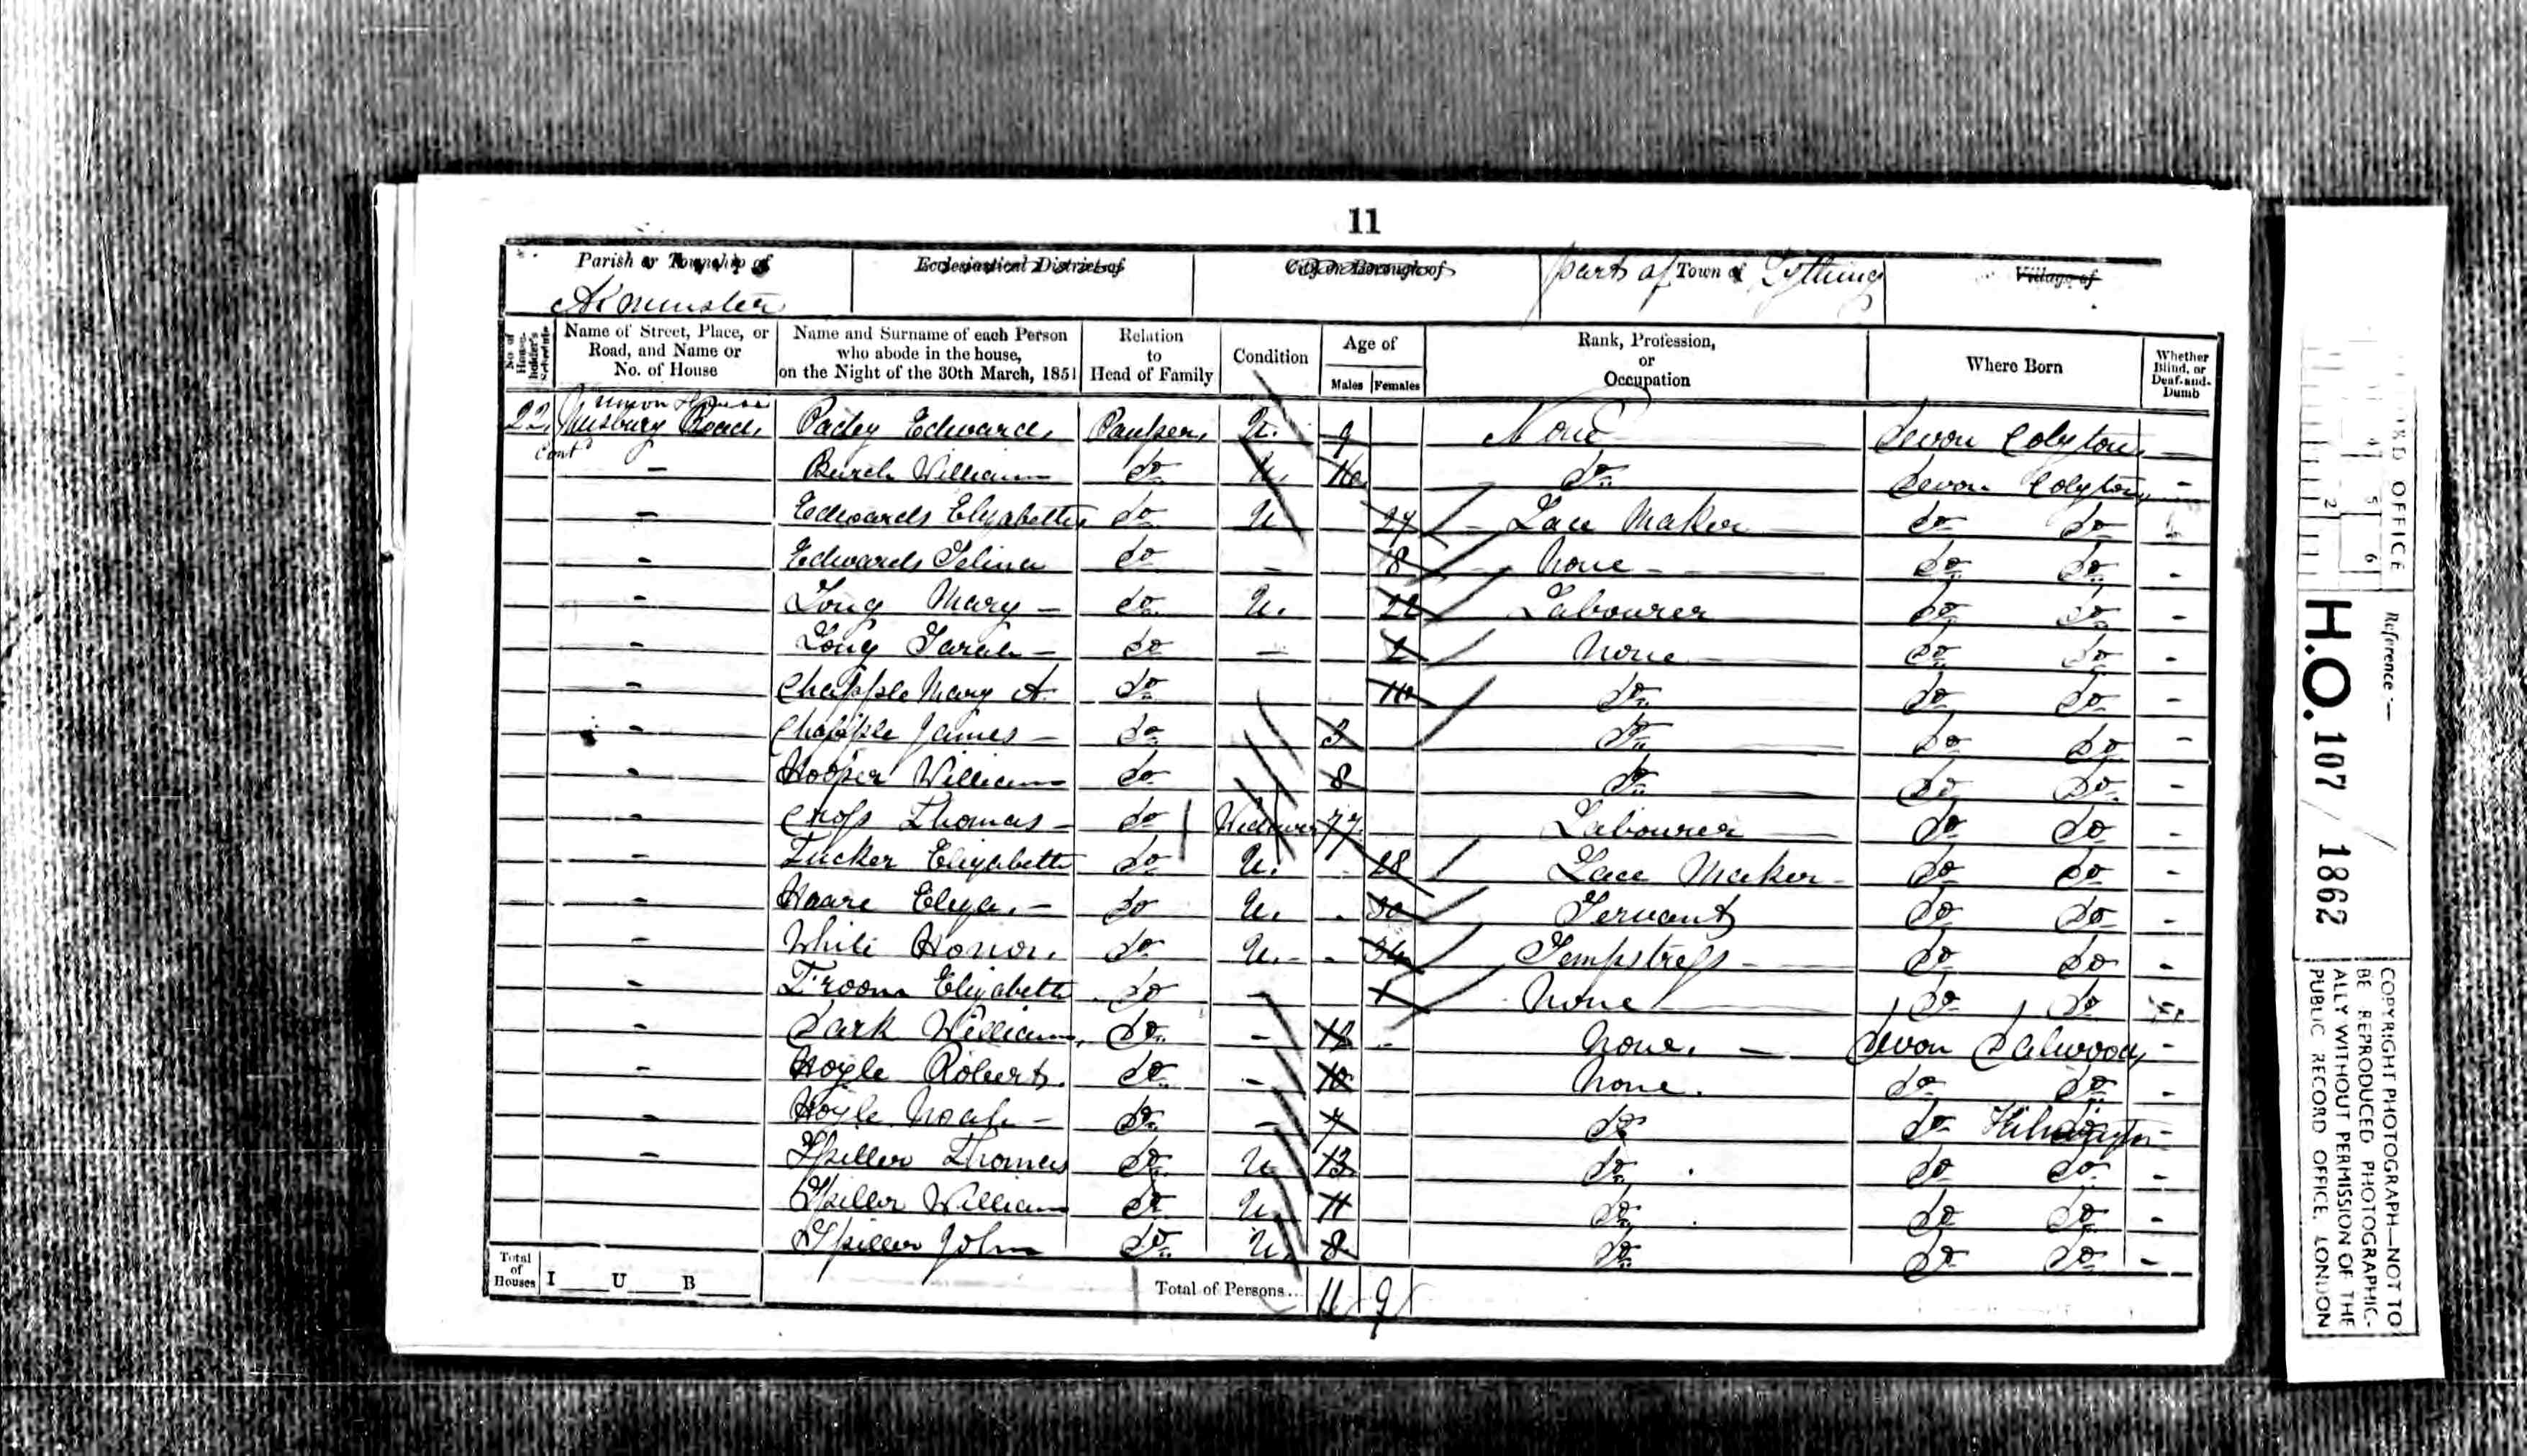 11
Parish or Township of Ecclesiastical District of City or Borough of parts of Town of Tything Village of
Axminster
No. of House-holder's Schedule Name of Street, Place, or Road, and Name or No. of House Name and Surname of each Person who abode in the house, on the Night of the 30th March, 1851 Relation to Head of Family Condition Age of Males Females Rank, Profession, or Occupation Where Born Whether Blind, or Deaf-and-Dumb
Union House
22 Musbury Road, Edward, Pauper, U. 9 None Devon Colyton
Cont'd
Burch William Do U. Do Devon Colyton
Edwards Elizabeth Do U 24 Lace Maker Do Do
Edwards Selina Do 8 None Do Do
Long Mary Do U. 22 Labourer Do Do
Long Sarah Do None Do Do
Chapple Mary A. Do Do Do Do
Chapple James Do 3 Do Do Do
Hooper William Do 8 Do Do Do
Cross Thomas Do Widower 77 Labourer Do Do
Tucker Elizabeth Do U. 28 Lace Maker Do Do
Haare Eliza. Do U. 30 Servant Do Do
White Honor. Do U. 34 Sempstress Do Do
Froom Elizabeth Do 1 None Do Do
Dark William, Do 12 None. Devon Dalwood
Hoyle Robert. Do 10 None. Do Do
Hoyle Noah Do 7 Do Do Kilmington
Spiller Thomas Do U 13 Do Do Do
Spiller William Do U 11 Do Do Do
Spiller John Do U. 8 Do Do Do
Total of Houses I U B Total of Persons... 11 9
OFFICE
Reference :—
H.O. 107 / 1862
COPYRIGHT PHOTOGRAPH—NOT TO
BE REPRODUCED PHOTOGRAPHIC-
ALLY WITHOUT PERMISSION OF THE
PUBLIC RECORD OFFICE, LONDON